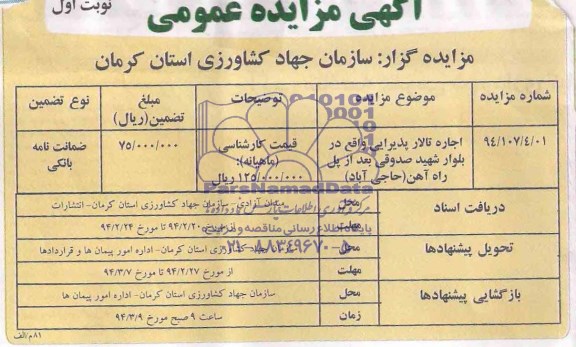 نوبت اول
آگهی مزایده عمومی
مزایده گزار: سازمان جهاد کشاورزی استان کرمان
شماره مزایده
موضوع مزایده
توضیحات
مبلغ تضمین(ریال)
نوع تضمین
۹۴/۱۰۷/۴/۰۱
اجاره تالار پذیرایی واقع در
بلوار شهید صدوقی بعد از پل
راه آهن(حاجی آباد)
قیمت کارشناسی
(ماهیانه):
۱۲۵/۰۰۰/۰۰۰ ریال
۷۵/۰۰۰/۰۰۰
ضمانت نامه
بانکی
دریافت اسناد
محل
میدان آزادی- سازمان جهاد کشاورزی استان کرمان- انتشارات
مهلت
از مورخ ۹۴/۲/۲۰ تا مورخ ۹۴/۲/۲۴
تحویل پیشنهادها
محل
سازمان جهاد کشاورزی استان کرمان- اداره امور پیمان ها و قراردادها
مهلت
از مورخ ۹۴/۲/۲۷ تا مورخ ۹۴/۳/۷
بازگشایی پیشنهادها
محل
سازمان جهاد کشاورزی استان کرمان- اداره امور پیمان ها
زمان
ساعت ۹ صبح مورخ ۹۴/۳/۹
۸۱م/الف
ParsNamadData
پایگاه اطلاع رسانی مناقصه و مزایده
۰۲۱-۸۸۳۴۹۶۷۰-۵